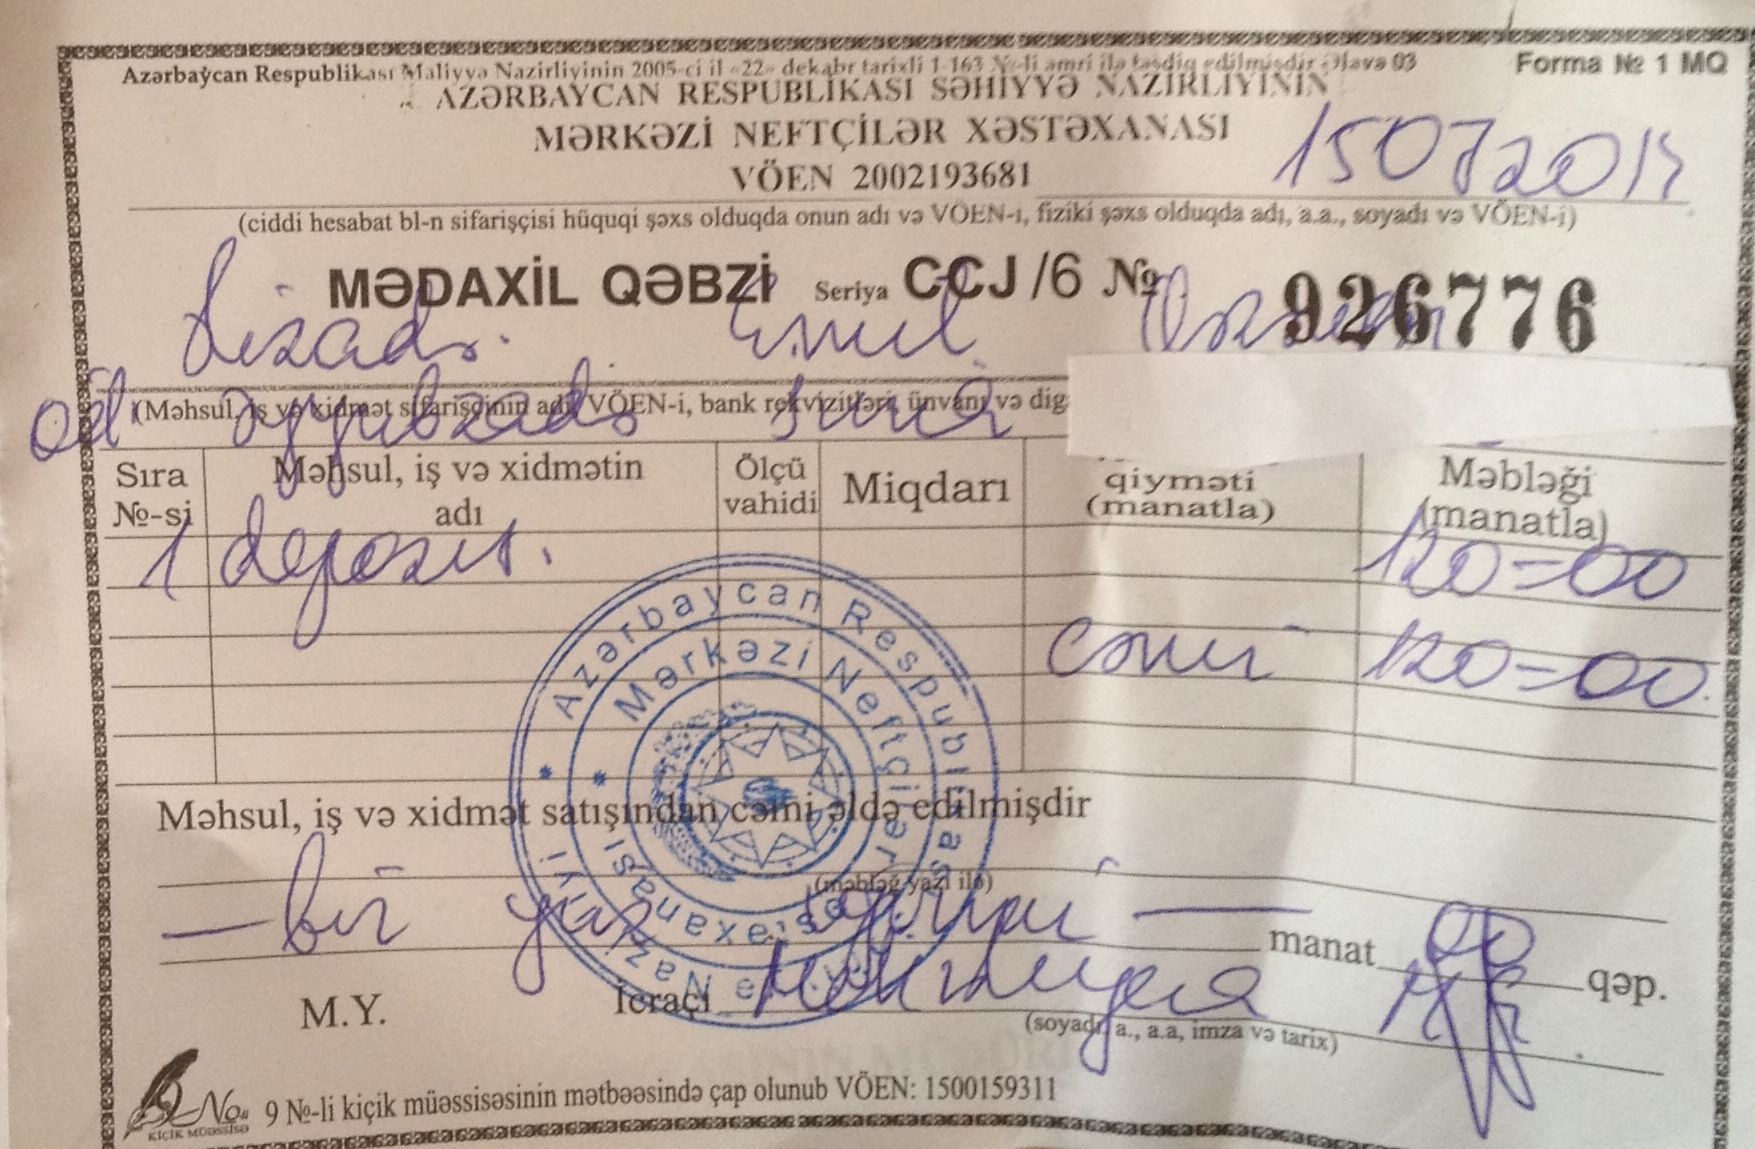 Azərbaycan Respublikası Maliyyə Nazirliyinin 2005-ci il «22» dekabr tarixli 1-163 №-li əmri ilə təsdiq edilmişdir Əlavə 03
Forma № 1 MQ
AZƏRBAYCAN RESPUBLİKASI SƏHİYYƏ NAZİRLİYİNİN
MƏRKƏZİ NEFTÇİLƏR XƏSTƏXANASI
VÖEN 2002193681
(ciddi hesabat bl-n sifarişçisi hüquqi şəxs olduqda onun adı və VÖEN-i, fiziki şəxs olduqda adı, a.a., soyadı və VÖEN-i)
MƏDAXİL QƏBZİ Seriya CCJ /6 № 926776
Emil
(Məhsul, iş və xidmət sifarişçinin adı, VÖEN-i, bank rekvizitləri, ünvanı və dig
Sıra №-si
Məhsul, iş və xidmətin adı
Ölçü vahidi
Miqdarı
qiyməti (manatla)
Məbləği (manatla)
1 depozit. 120=00
cəmi 120=00
Məhsul, iş və xidmət satışından cəmi əldə edilmişdir
(məbləğ yazı ilə)
— bir yüz iyirmi — manat 00 qəp.
M.Y. İcraçı
(soyadı, a., a.a, imza və tarix)
Azərbaycan Respublikası Səhiyyə Nazirliyi
Mərkəzi Neftçilər Xəstəxanası
KİÇİK MÜƏSSİSƏ
9 №-li kiçik müəssisəsinin mətbəəsində çap olunub VÖEN: 1500159311